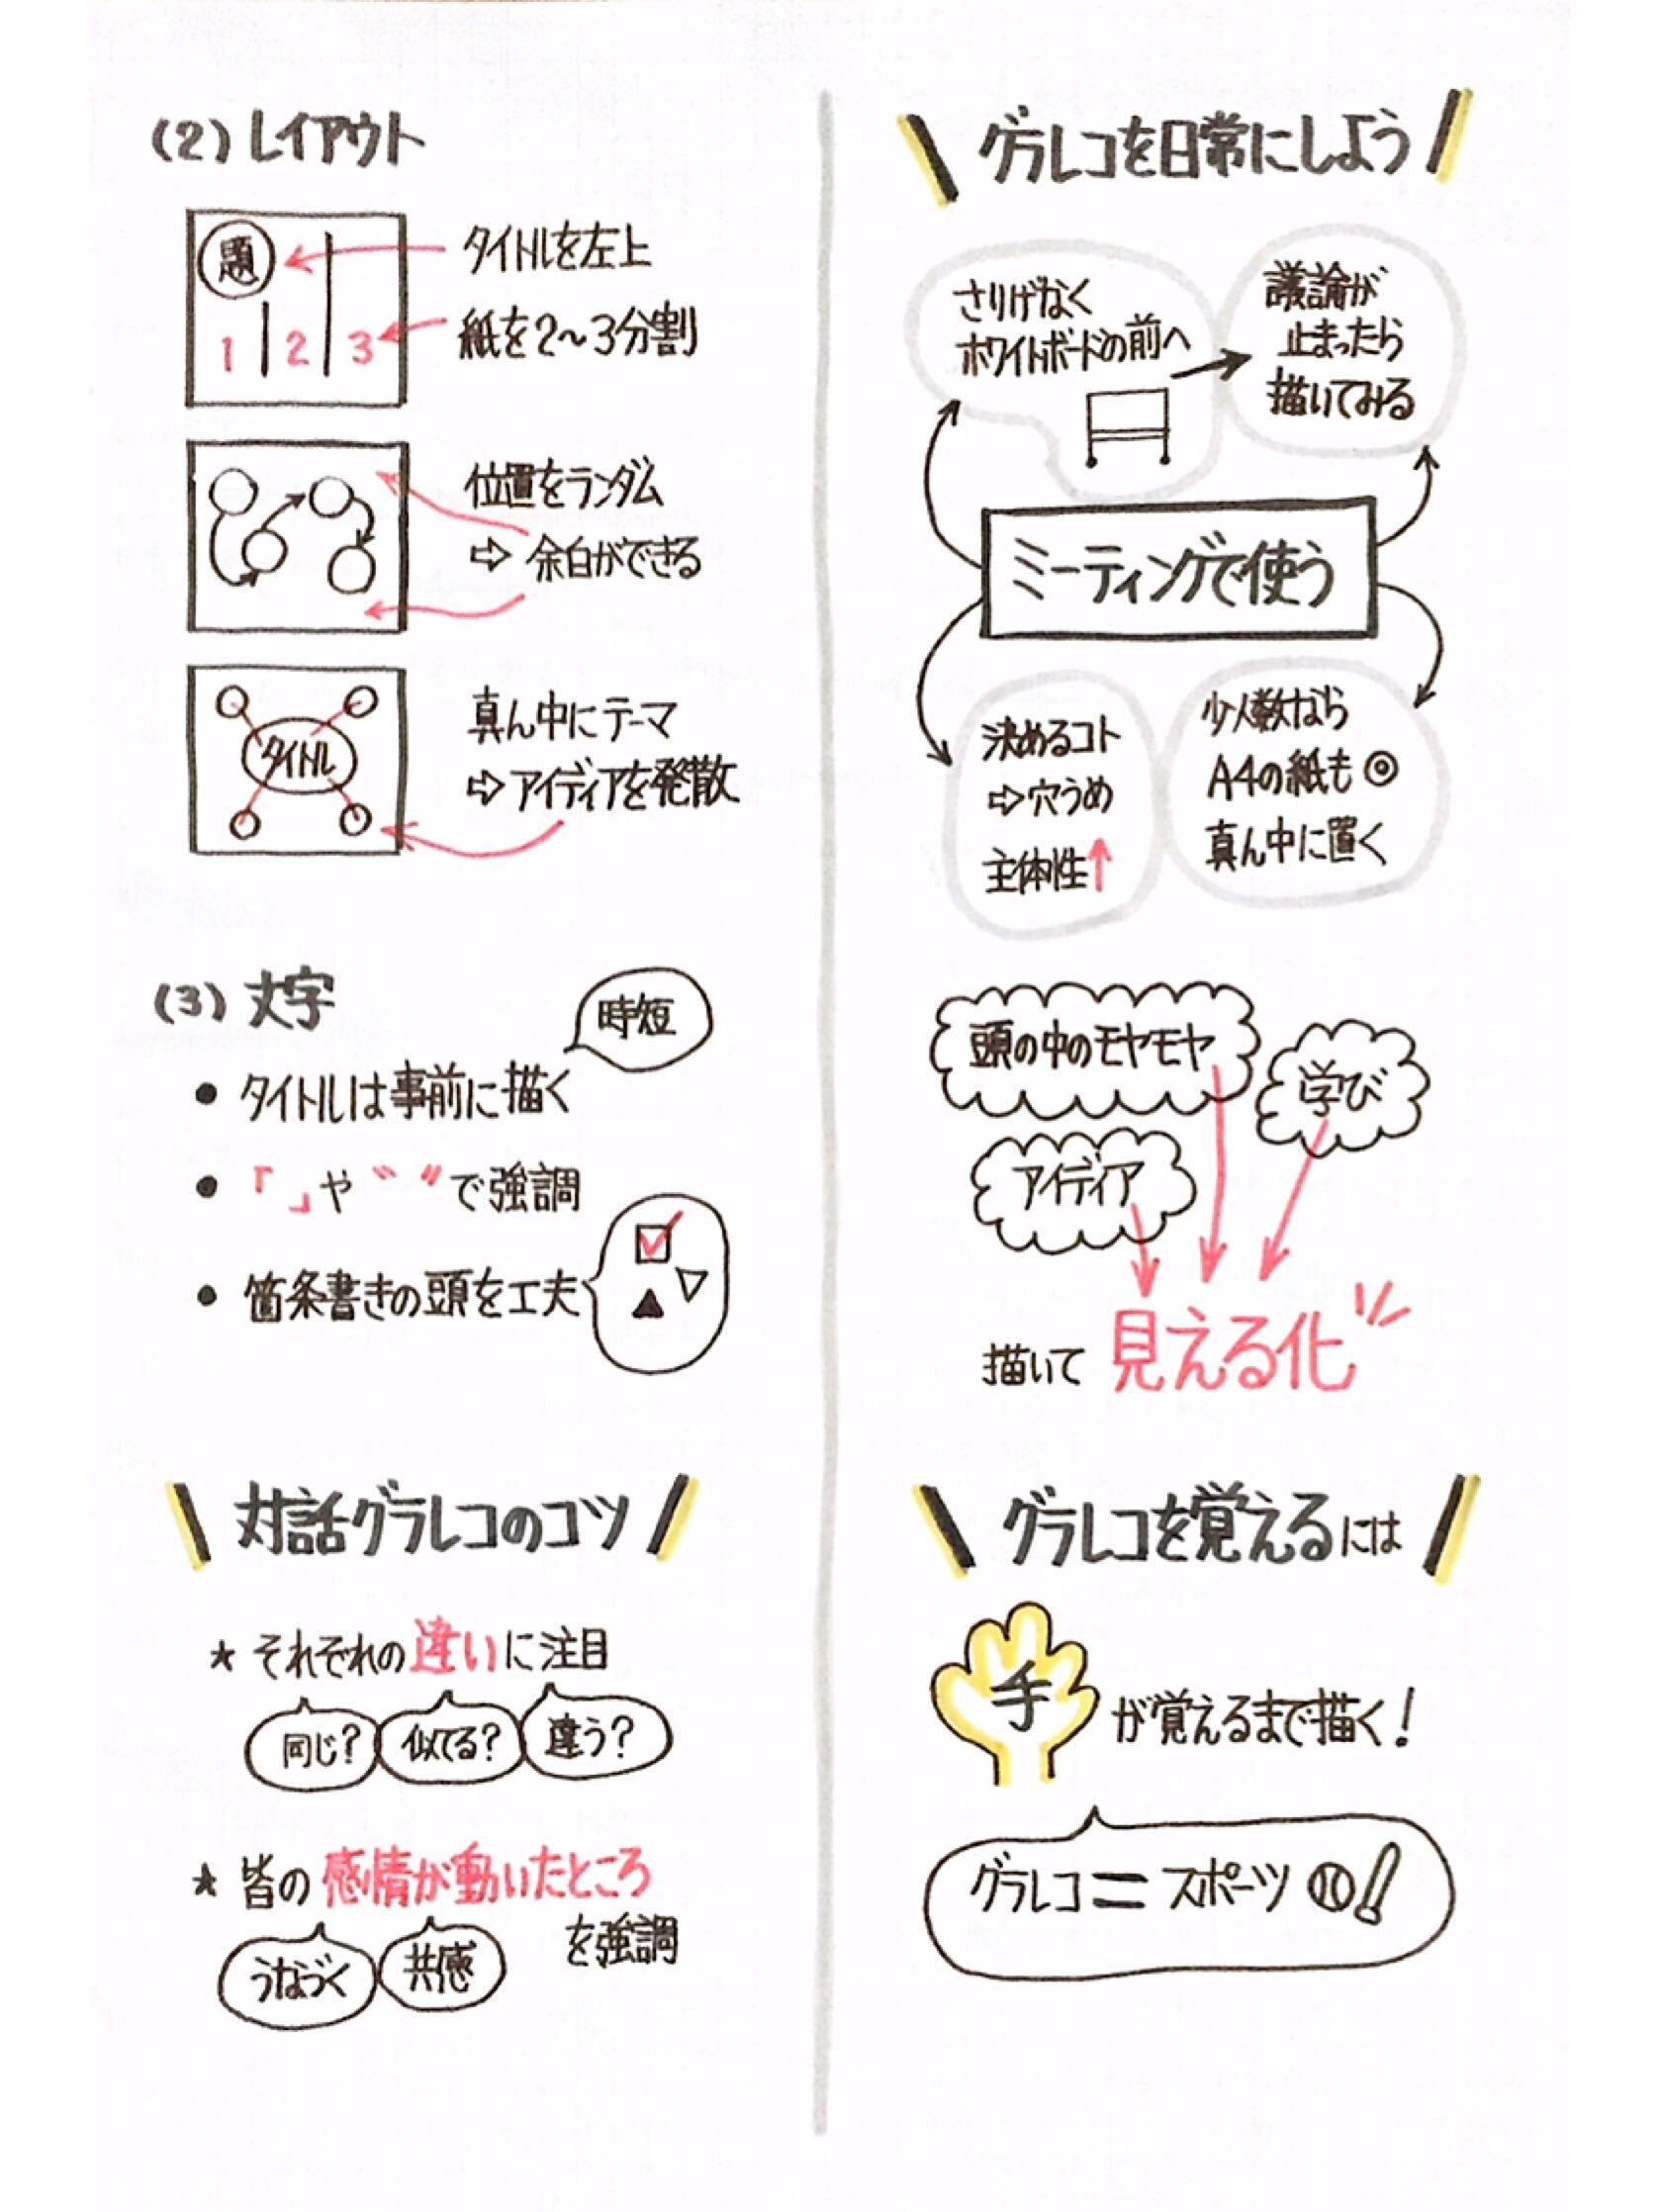 (2) レイアウト
題
1 2 3
タイトルを左上
紙を2〜3分割
位置をランダム
⇨ 余白ができる
タイトル
真ん中にテーマ
⇨ アイディアを発散
(3) 文字
時短
• タイトルは事前に描く
• 「 」や〝 〟で強調
• 箇条書きの頭を工夫
対話グラレコのコツ
★ それぞれの違いに注目
同じ? 似てる? 違う?
★ 皆の感情が動いたところ
を強調
うなづく 共感
グラレコを日常にしよう
さりげなく
ホワイトボードの前へ
議論が
止まったら
描いてみる
ミーティングで使う
決めるコト
⇨穴うめ
主体性↑
少人数なら
A4の紙も◎
真ん中に置く
頭の中のモヤモヤ
学び
アイディア
描いて 見える化
グラレコを覚えるには
手が覚えるまで描く!
グラレコ = スポーツ